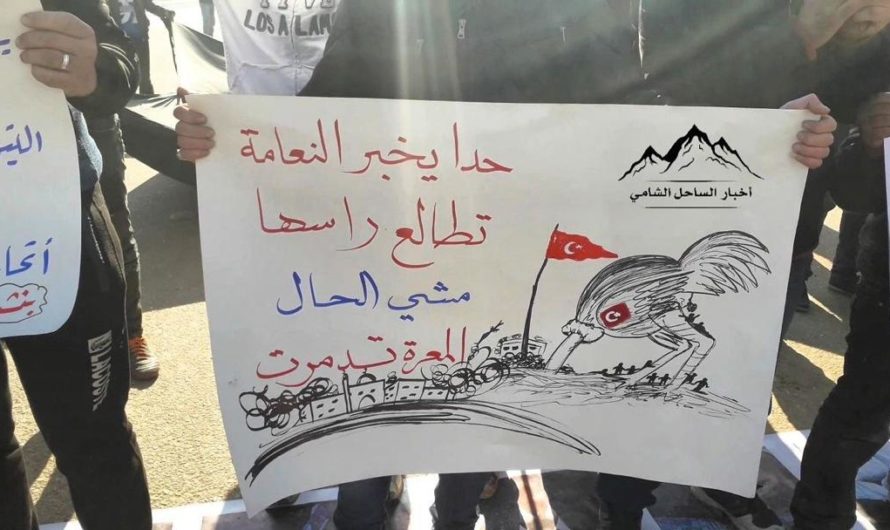 LOS ALAM
حدا يخبر النعامة
تطالع راسها
مشي الحال
المعرة تدمرت
أخبار الساحل الشامي